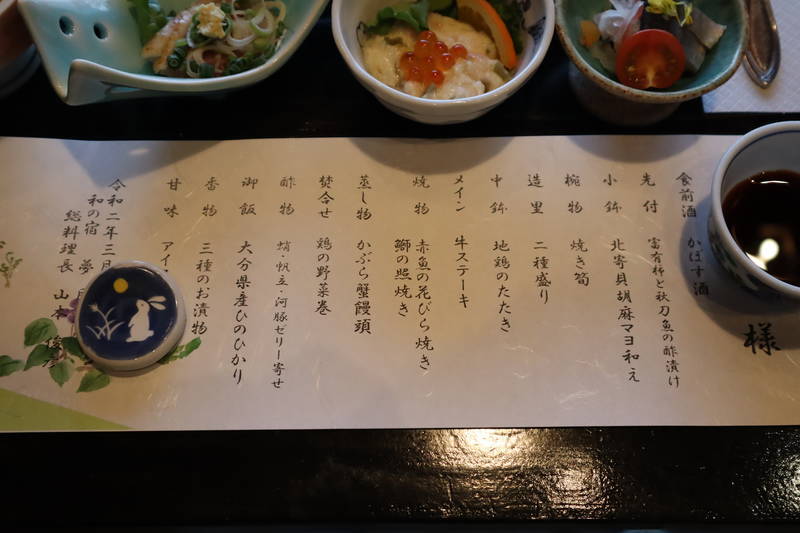 様
食前酒 かぼす酒
先付 富有柿と秋刀魚の酢漬け
小鉢 北寄貝胡麻マヨ和え
椀物 焼き筍
造里 二種盛り
中鉢 地鶏のたたき
メイン 牛ステーキ
焼物 赤魚の花びら焼き
鰤の照焼き
蒸し物 かぶら蟹饅頭
焚合せ 鶏の野菜巻
酢物 蛸・帆立・河豚ゼリー寄せ
御飯 大分県産ひのひかり
香物 三種のお漬物
甘味 アイ
令和二年三月
和の宿 夢
総料理長 山本